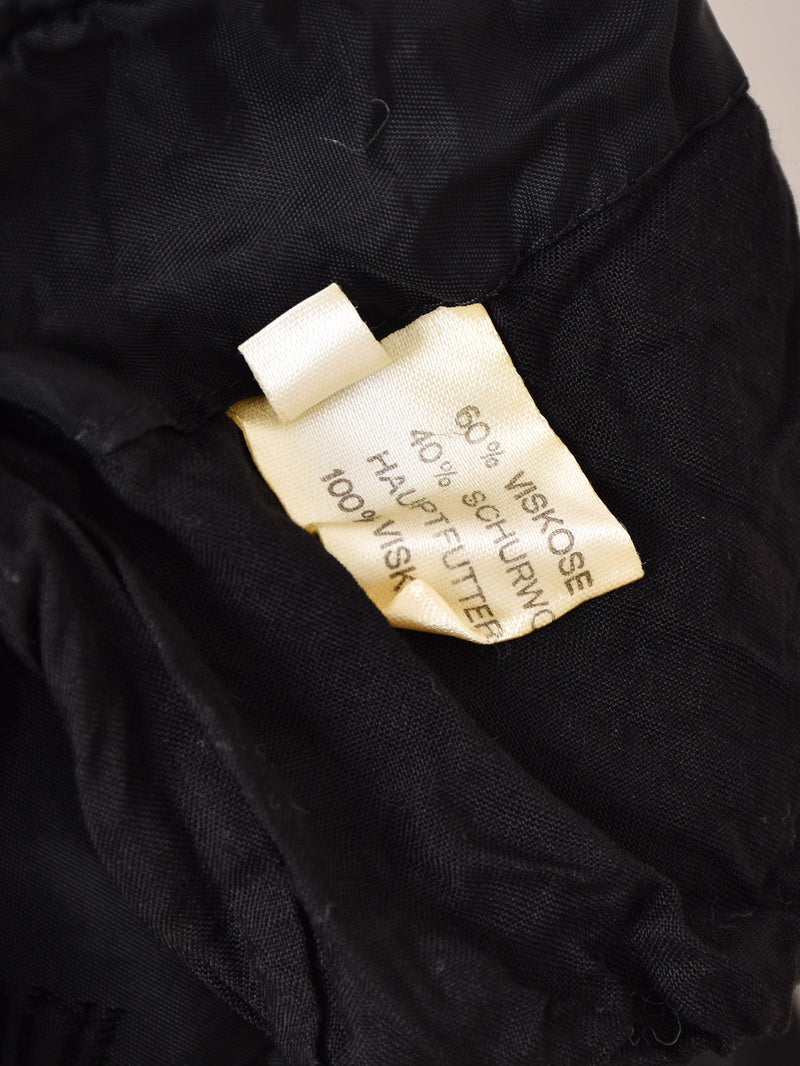 60% VISKOSE
40% SCHURWO
HAUPTFUTTER
100% VISK